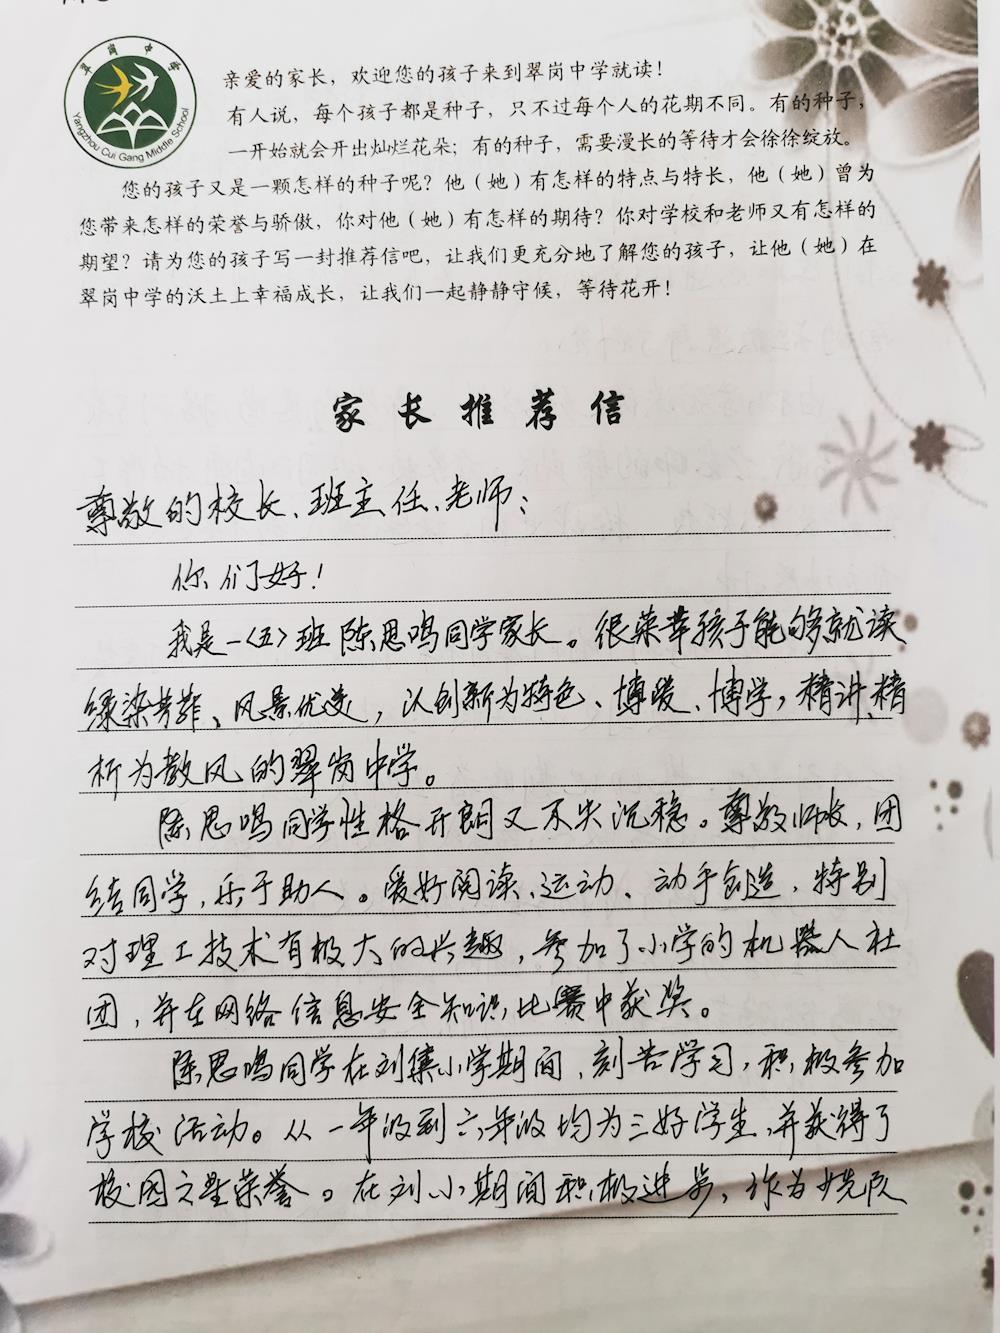 翠岗中学
Yangzhou Cui Gang Middle School
亲爱的家长，欢迎您的孩子来到翠岗中学就读！
有人说，每个孩子都是种子，只不过每个人的花期不同。有的种子，
一开始就会开出灿烂花朵；有的种子，需要漫长的等待才会徐徐绽放。
您的孩子又是一颗怎样的种子呢？他（她）有怎样的特点与特长，他（她）曾为
您带来怎样的荣誉与骄傲，你对他（她）有怎样的期待？你对学校和老师又有怎样的
期望？请为您的孩子写一封推荐信吧，让我们更充分地了解您的孩子，让他（她）在
翠岗中学的沃土上幸福成长，让我们一起静静守候，等待花开！
家长推荐信
尊敬的校长、班主任、老师：
你们好！
我是一〈五〉班陈思鸣同学家长。很荣幸孩子能够就读
绿染芳菲、风景优美，以创新为特色、博爱、博学，精讲、精
析为教风的翠岗中学。
陈思鸣同学性格开朗又不失沉稳。尊敬师长，团
结同学，乐于助人。爱好阅读、运动、动手创造，特别
对理工技术有极大的兴趣，参加了小学的机器人社
团，并在网络信息安全知识比赛中获奖。
陈思鸣同学在刘集小学期间，刻苦学习，积极参加
学校活动。从一年级到六年级均为三好学生，并获得了
校园之星荣誉。在刘小期间积极进步，作为少先队